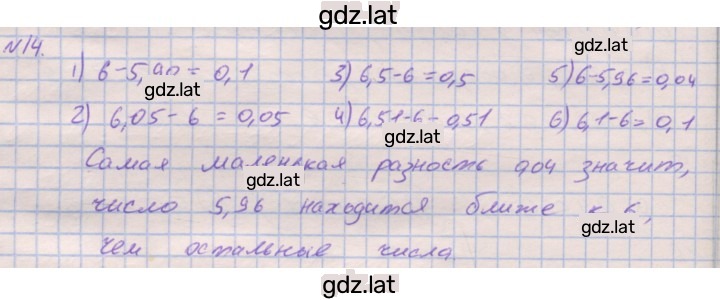 gdz.lat
№14.
1) 6-5,90 = 0,1 3) 6,5-6=0,5 5) 6-5,96=0,04
gdz.lat gdz.lat
2) 6,05-6 = 0,05 4) 6,51-6=0,51 6) 6,1-6=0,1
gdz.lat
Самая маленькая разность 0,04 значит,
gdz.lat
число 5,96 находится ближе к 6,
gdz.lat
чем остальные числа
gdz.lat